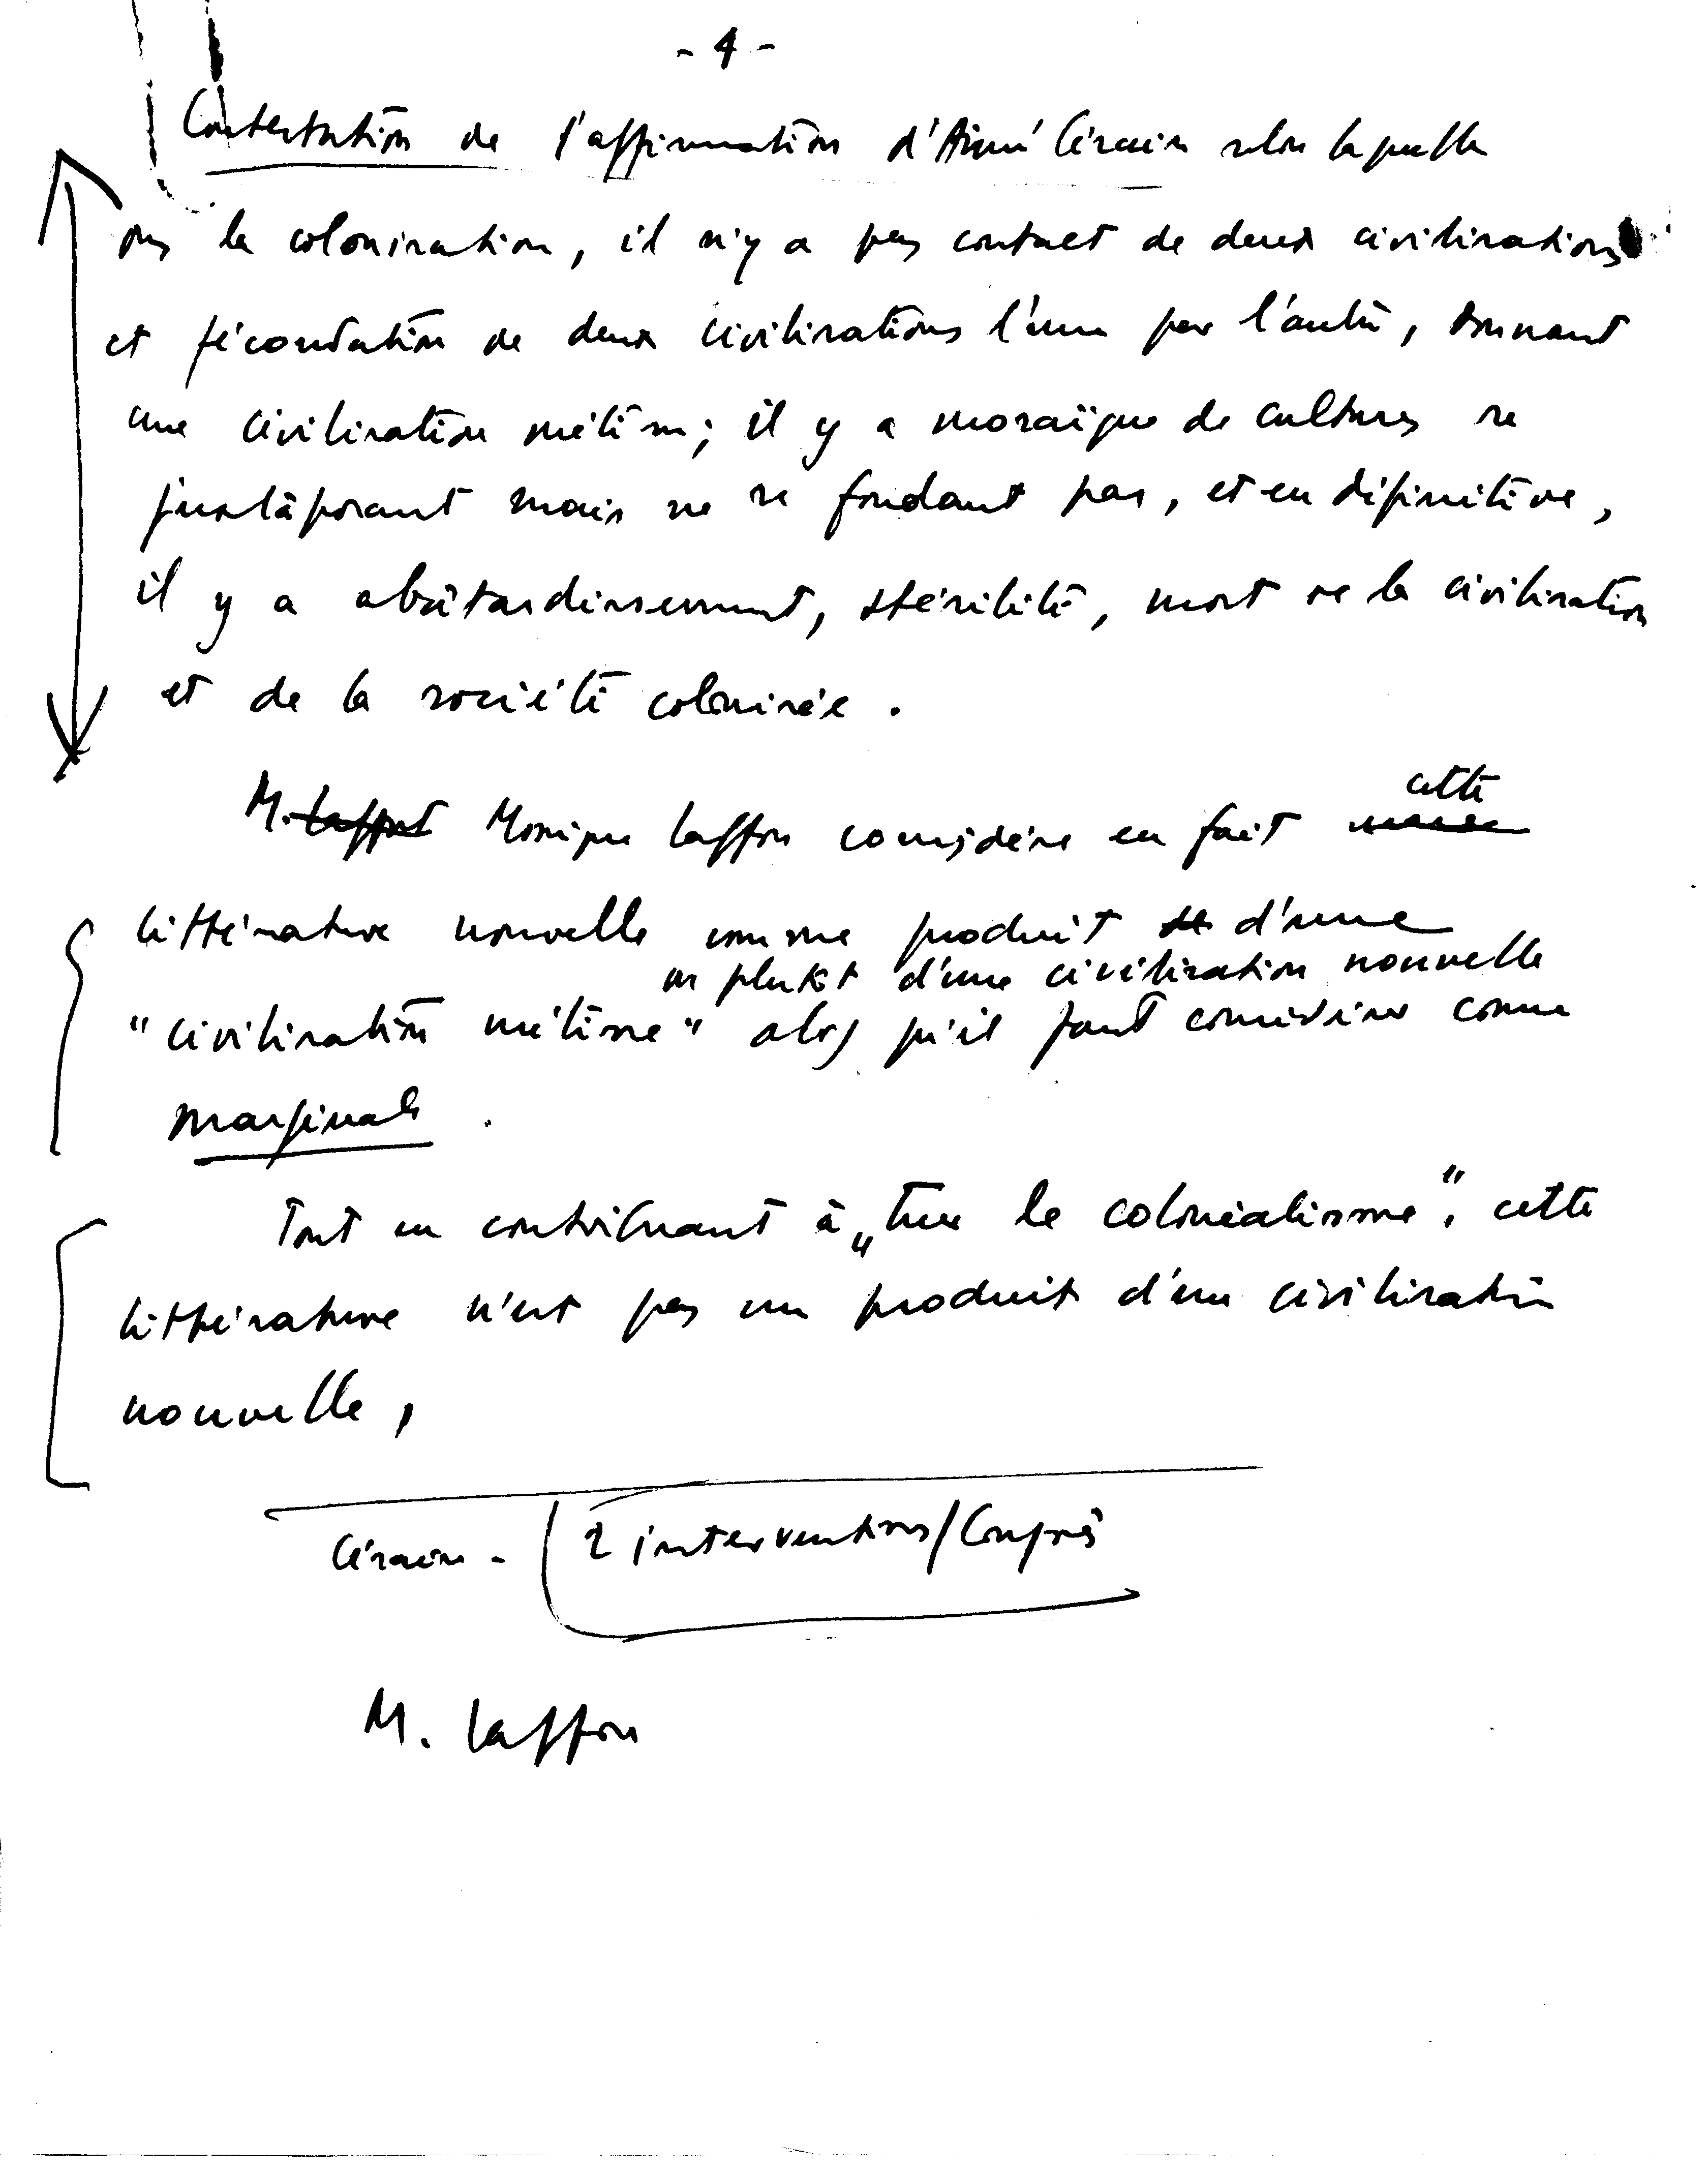 - 4 -
Contestation de l'affirmation d'Aimé Césaire selon laquelle
la colonisation, il n'y a pas contact de deux civilisations
et fécondation de deux civilisations l'une par l'autre, donnant
une civilisation métisse; il y a mosaïque de cultures se
juxtaposant mais ne se fondant pas, et en définitive,
il y a abâtardissement, stérilité, mort de la civilisation
et de la société colonisée.
cette
M. Laffont Monique Laffon considère en fait
littérature nouvelle comme produit d'une
ou plutôt d'une civilisation nouvelle
"civilisation métisse" alors qu'il faut considérer comme
marginale.
Tout en contribuant à „tuer le colonialisme", cette
littérature n'est pas un produit d'une civilisation
nouvelle,
Césaire - 2 interventions/Congrès
M. Laffon